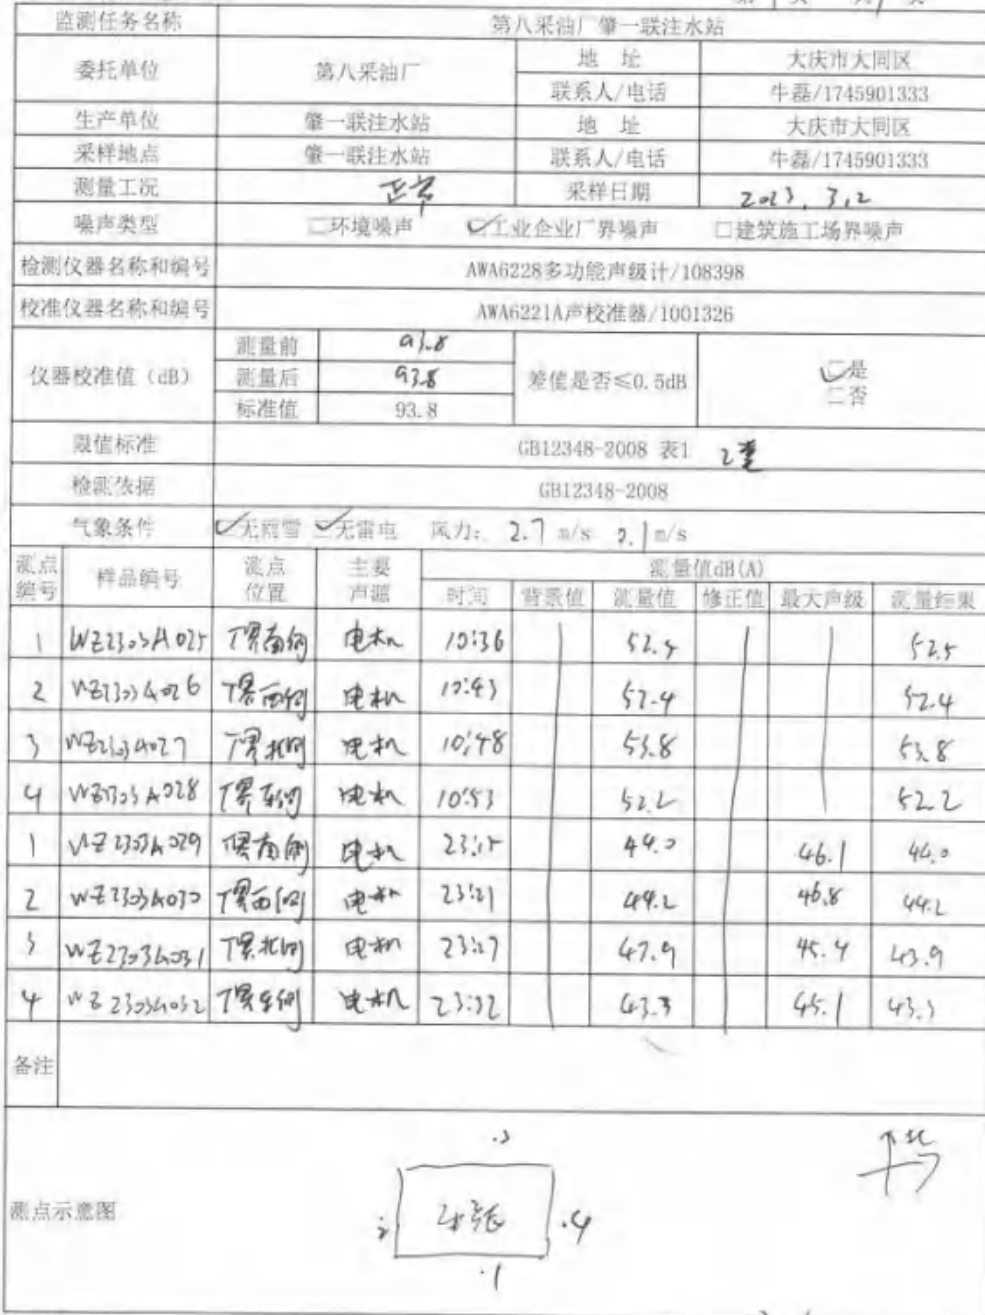 监测任务名称 第八采油厂肇一联注水站
委托单位 第八采油厂 地 址 大庆市大同区
联系人/电话 牛磊/1745901333
生产单位 肇一联注水站 地 址 大庆市大同区
采样地点 肇一联注水站 联系人/电话 牛磊/1745901333
测量工况 正常 采样日期 2023.3.2
噪声类型 □环境噪声 ☑工业企业厂界噪声 □建筑施工场界噪声
检测仪器名称和编号 AWA6228多功能声级计/108398
校准仪器名称和编号 AWA6221A声校准器/1001326
仪器校准值（dB） 测量前 93.8 差值是否≤0.5dB ☑是
测量后 93.8 □否
标准值 93.8
限值标准 GB12348-2008 表1 2类
检测依据 GB12348-2008
气象条件 ☑无雨雪 ☑无雷电 风力: 2.7 m/s 2.1 m/s
测点编号 样品编号 测点位置 主要声源 测量值dB(A)
时间 背景值 测量值 修正值 最大声级 测量结果
1 WZ2303A025 厂界南侧 电机 10:36 52.5 52.5
2 WZ2303A026 厂界西侧 电机 10:43 52.4 52.4
3 WZ2303A027 厂界北侧 电机 10:48 53.8 53.8
4 WZ2303A028 厂界东侧 电机 10:53 52.2 52.2
1 WZ2303A029 厂界南侧 电机 23:15 44.0 46.1 44.0
2 WZ2303A030 厂界西侧 电机 23:21 44.2 46.8 44.2
3 WZ2303A031 厂界北侧 电机 23:27 43.9 45.4 43.9
4 WZ2303A032 厂界东侧 电机 23:32 43.3 45.1 43.3
备注
测点示意图
3
北
2
4
1